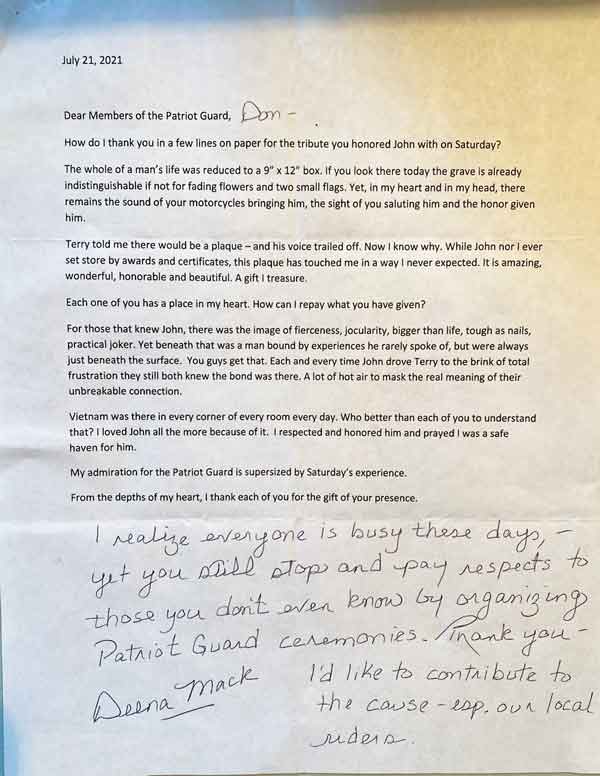 July 21, 2021
Dear Members of the Patriot Guard, Don -
How do I thank you in a few lines on paper for the tribute you honored John with on Saturday?
The whole of a man's life was reduced to a 9" x 12" box. If you look there today the grave is already
indistinguishable if not for fading flowers and two small flags. Yet, in my heart and in my head, there
remains the sound of your motorcycles bringing him, the sight of you saluting him and the honor given
him.
Terry told me there would be a plaque – and his voice trailed off. Now I know why. While John nor I ever
set store by awards and certificates, this plaque has touched me in a way I never expected. It is amazing,
wonderful, honorable and beautiful. A gift I treasure.
Each one of you has a place in my heart. How can I repay what you have given?
For those that knew John, there was the image of fierceness, jocularity, bigger than life, tough as nails,
practical joker. Yet beneath that was a man bound by experiences he rarely spoke of, but were always
just beneath the surface. You guys get that. Each and every time John drove Terry to the brink of total
frustration they still both knew the bond was there. A lot of hot air to mask the real meaning of their
unbreakable connection.
Vietnam was there in every corner of every room every day. Who better than each of you to understand
that? I loved John all the more because of it. I respected and honored him and prayed I was a safe
haven for him.
My admiration for the Patriot Guard is supersized by Saturday's experience.
From the depths of my heart, I thank each of you for the gift of your presence.
I realize everyone is busy these days, -
yet you still stop and pay respects to
those you don't even know by organizing
Patriot Guard ceremonies. Thank you -
Deena Mack
I'd like to contribute to
the cause - esp. our local
riders.